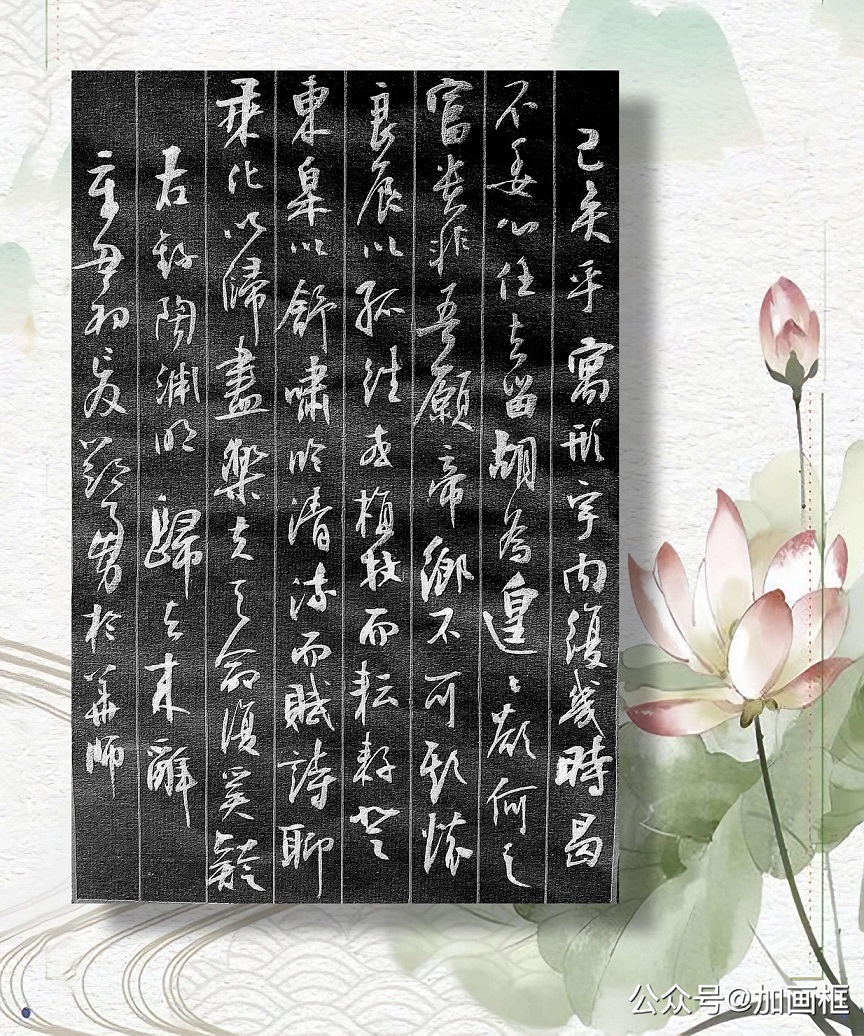 已矣乎寓形宇内復幾時曷
不委心任去留胡為遑〻欲何之
富貴非吾願帝鄉不可期懷
良辰以孤往或植杖而耘耔登
東皋以舒嘯臨清流而賦詩聊
乘化以歸盡樂夫天命復奚疑
右録陶渊明歸去来辭
辛丑初夏於華師
公众号@加画框